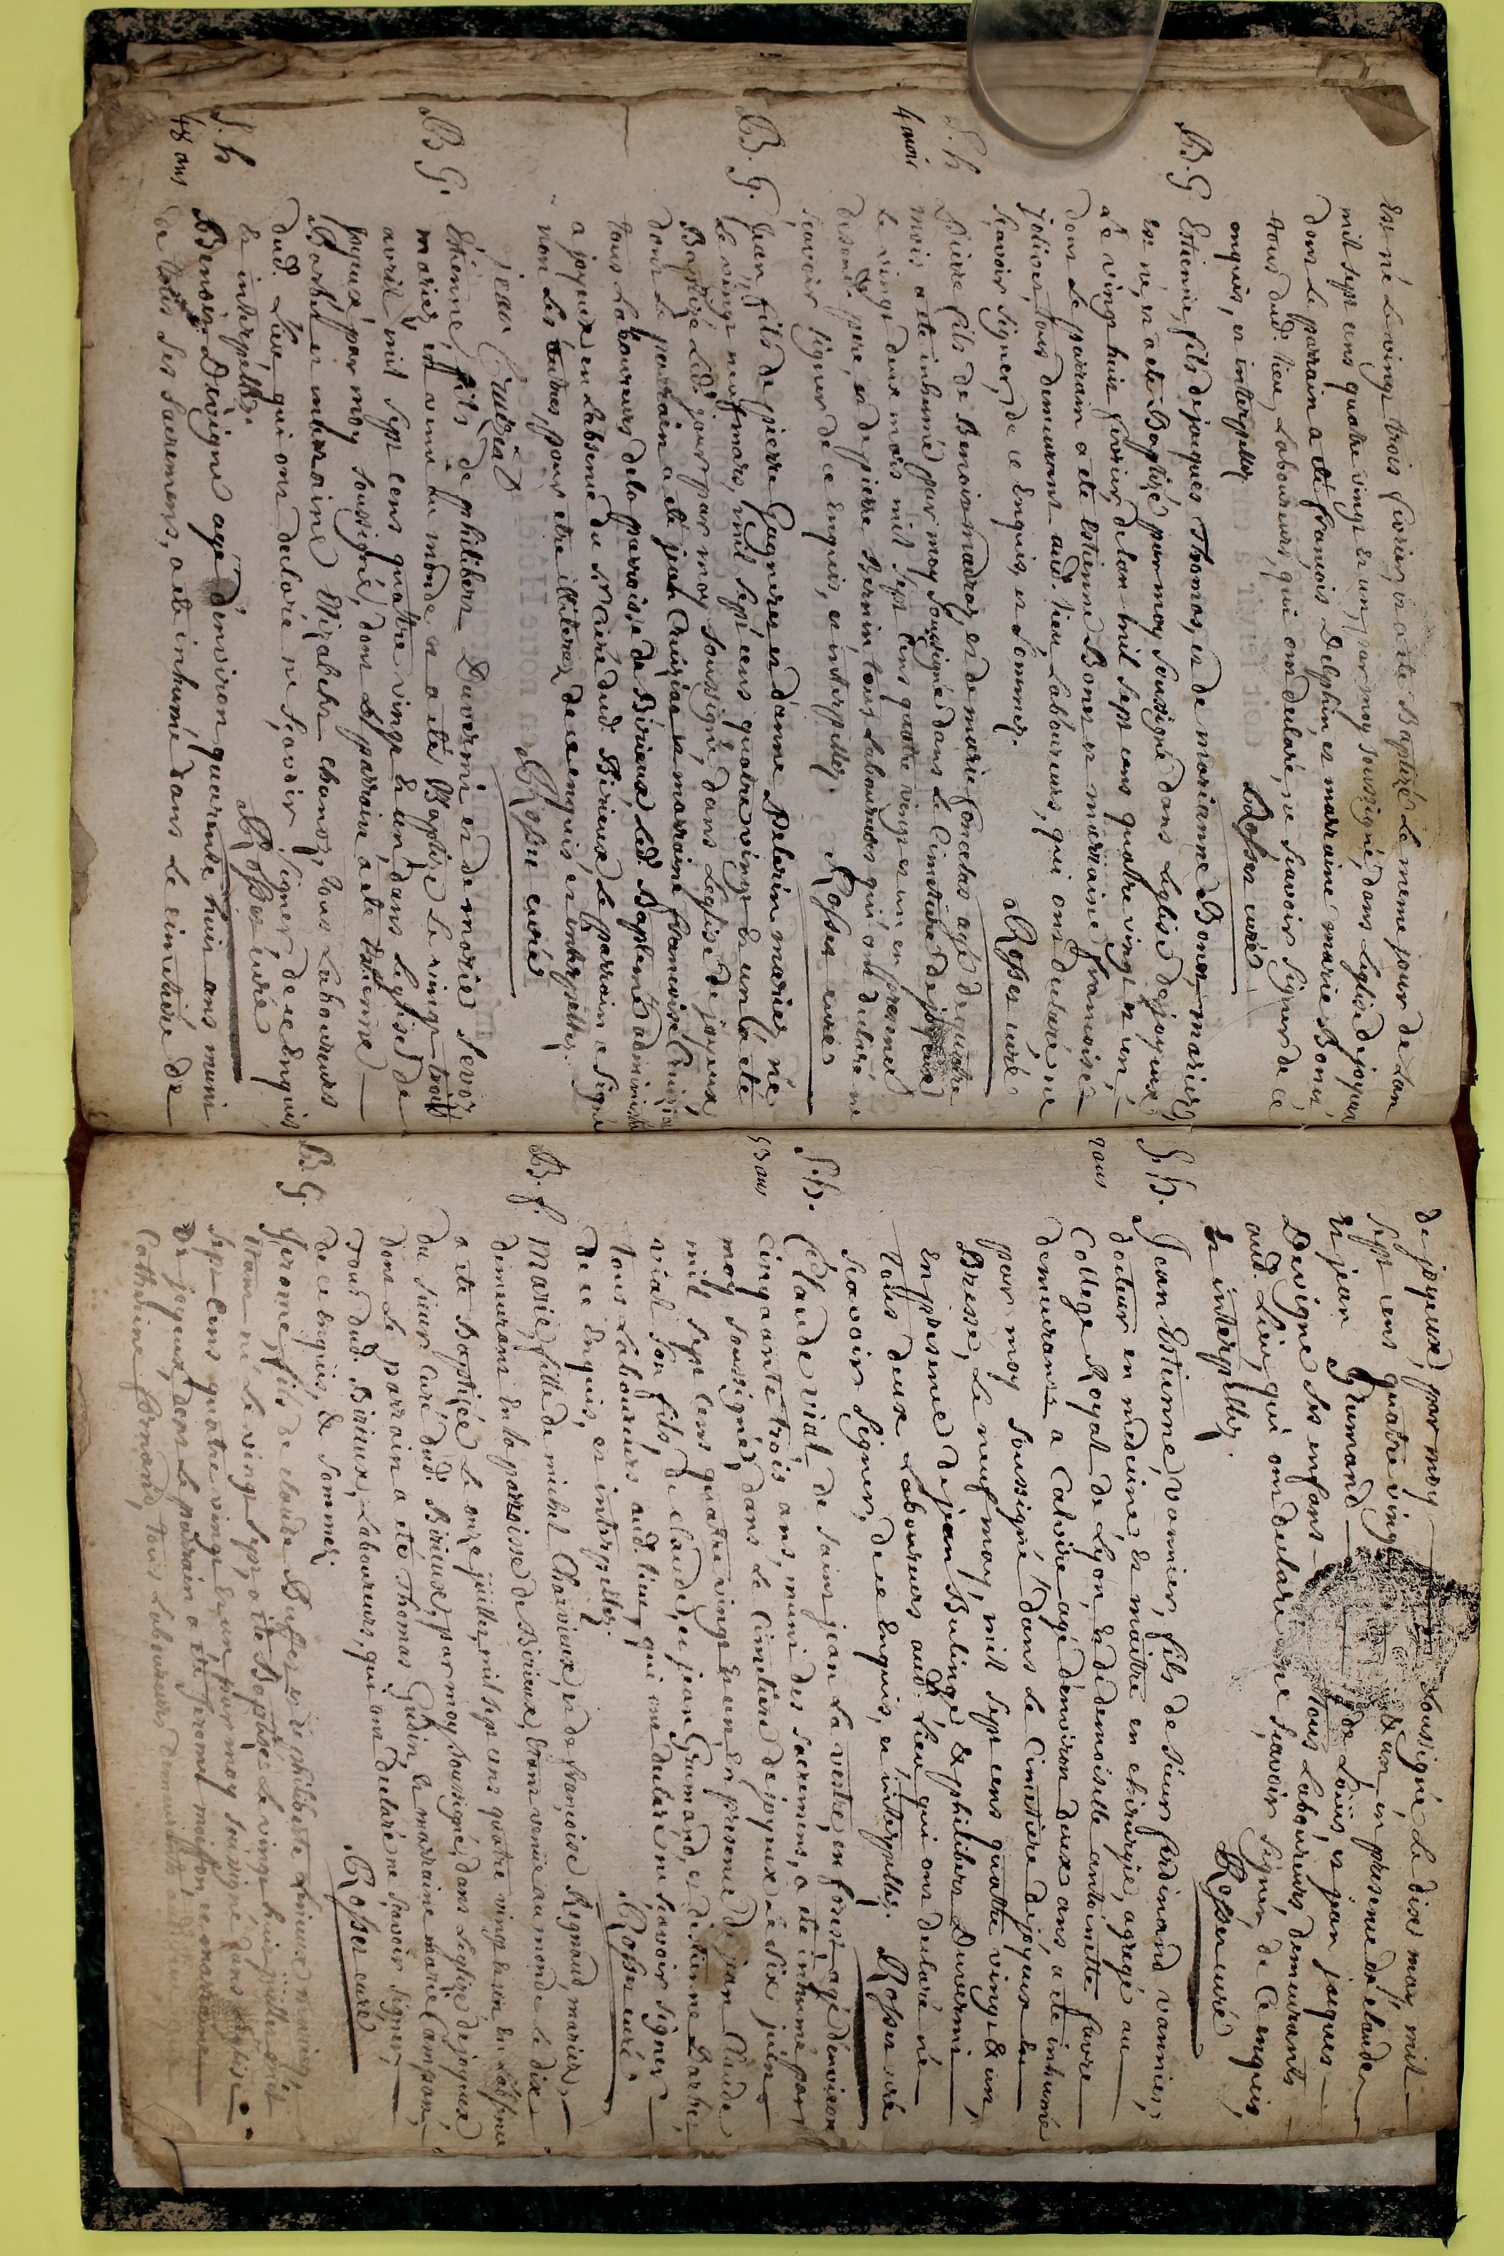 est né le vingt trois fevrier, et a ete Baptizé le meme jour de l'an
mil sept cens quatre vingt & un, par moy soussigné, dans l'eglise de joyeux
dont le parrain a eté françois Delphin, et marraine marie Bonet,
tous dud. lieu, Laboureurs, qui ont declaré, ne sçavoir signer de ce
enquis, et interpellez
Rosset curé
B. G. Estienne, fils de jaques Thomas, et de marianne Bonet, mariez,
est né, et a eté Baptizé par moy soussigné dans l'eglise de joyeux,
le vingt huit fevrier, de l'an mil sept cens quatre vingt et un,
dont le parrain a ete Estienne Bonet et marraine françoise
jolivet, tous demeurant aud. lieu Laboureurs, qui ont declaré ne
sçavoir signer, de ce enquis, et sommez.
Rosset curé
S. h
4 mois
Pierre fils de Benoit madroz, et de marie foncelas agé de quatre
mois a ete inhumé par moy soussigné dans le Cimetiere de joyeux
le vingt deux mars mil sept cens quatre vingt et un en presence
desond. pere, et de pierre Bernin tous Laboureurs qui ont declaré ne
scavoir signer de ce enquis, et interpellez.
Rosset curé
B. G. jean, fils de pierre Gagneres et d'anne Pelerin mariez né
le vingt neuf mars, mil sept cens quatre vingt & un, a eté
Baptizé led. jour par moy soussigné dans l'eglise de joyeux,
dont le parrain a ete jean Cruiziat et marraine françoise Cruiziat
tous Laboureurs de la parroisse de Birieux, led. Baptême administré
a joyeux en l'absence du Sr Curé dud. Birieux le parrain a signé
non les autres pour etre illiterez de ce enquis, et interpellez.
jean Cruiziat
Rosset curé
B G. Etienne, fils de philibert Duvernai et de marie Sevoz
mariez, est venu au monde et a eté Baptizé le vingt trois
avril mil sept cens quatre vingt & un, dans l'eglise de
joyeux par moy soussigné, dont le parrain a ete Etienne
Barbet et marraine Elizabeth chanoz, tous Laboureurs
dud. Lieu, qui ont declaré ne sçavoir signer de ce enquis
et interpellez.
Rosset curé
S. h
48 ans
Benoit Devigne agé d'environ quarante huit ans muni
de tous ses sacremens, a eté inhumé dans le cimetiere de
de joyeux, par moy soussigné le dix may mil
sept cens quatre vingt & un en presence de claude
et jean Grumand de Loüis, et jean jacques
Devigne ses enfans tous Laboureurs demeurants
aud. lieu, qui ont declaré ne sçavoir signer, de ce enquis,
et interpellez.
Rosset curé
S. h.
2 ans
Jean Estienne, vonnier, fils de Sieur ferdinand vonnier,
docteur en medecine et maitre en chirurgie, agregé au
College Royal de Lyon, & de demoiselle antoinette favre
demeurants a Caluire agé d'environ deux ans a ete inhumé
par moy soussigné dans le Cimetiere de joyeux en
Bresse, le neuf may, mil sept cens quatre vingt & un,
en presence de jean Bulinge, & philibert Duvernai
tous deux Laboureurs aud. Lieu qui ont declaré ne
scavoir signer, de ce enquis, et interpellez. Rosset curé
S. h.
53 ans
Claude vial de saint jean la vestre, en forest agé d'environ
cinquante trois ans, muni des sacremens, a eté inhumé par
moy soussigné, dans le Cimetiere de joyeux le six juin
mil sept cens quatre vingt & un, en presence de jean Claude
vial son fils, de claude, et jean Grumand, et d'Etienne Barbet,
tous Laboureurs aud. lieu, qui ont declaré ne scavoir signer
de ce enquis, et interpellez.
Rosset curé
B. f. Marie, fille de michel Chaivieux, et de françoise Regnaud, mariez,
demeurans en la parroisse de Birieux, etant venüe au monde le dix
a ete Baptizée le onze juillet, mil sept cens quatre vingt & un en l'absence
du Sieur Curé dud. Birieux, par moy soussigné, dans l'eglise de joyeux
dont le parrain a eté Thomas Gudin, et marraine marie Campan,
tous dud. Birieux, Laboureurs, qui ont declaré ne scavoir signer,
de ce enquis, & sommez.
Rosset curé
B. G. Jerome, fils de claude Buffet et de philiberte mariez,
etant né le vingt sept, a ete Baptizé le vingt huit juillet mil
sept cens quatre vingt & un, par moy soussigné dans l'eglise
de joyeux, dont le parrain a ete Jerome moisson, et marraine
Catherine fornand, tous Laboureurs demeurants a